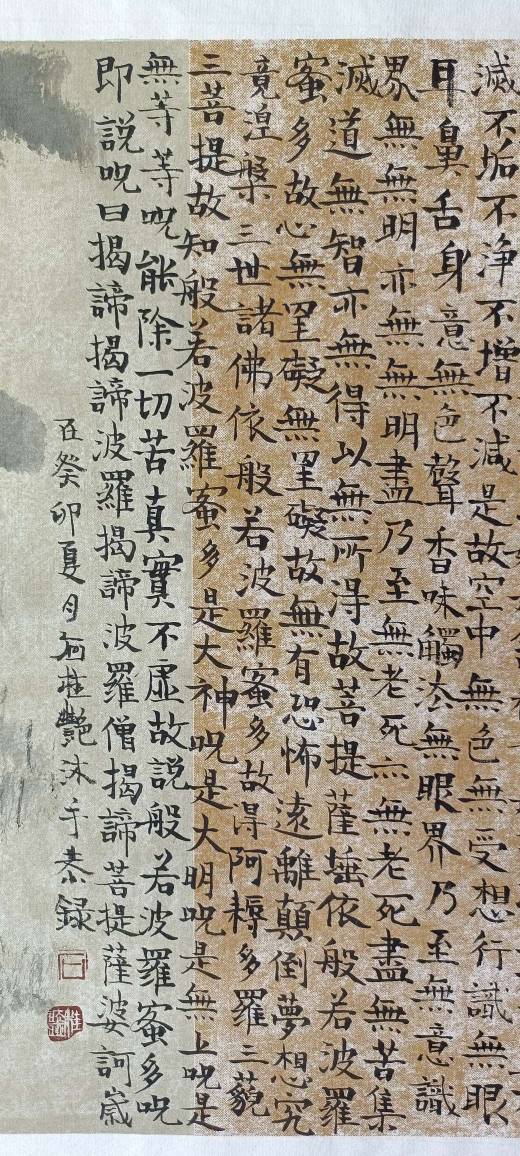 滅不垢不淨不增不減是故空中無色無受想行識無眼
耳鼻舌身意無色聲香味觸法無眼界乃至無意識
界無無明亦無無明盡乃至無老死亦無老死盡無苦集
滅道無智亦無得以無所得故菩提薩埵依般若波羅
蜜多故心無罣礙無罣礙故無有恐怖遠離顛倒夢想究
竟涅槃三世諸佛依般若波羅蜜多故得阿耨多羅三藐
三菩提故知般若波羅蜜多是大神呪是大明呪是無上呪是
無等等呪能除一切苦真實不虛故說般若波羅蜜多呪
即說呪曰揭諦揭諦波羅揭諦波羅僧揭諦菩提薩婆訶歲
在癸卯夏月何桂艷沐手恭錄